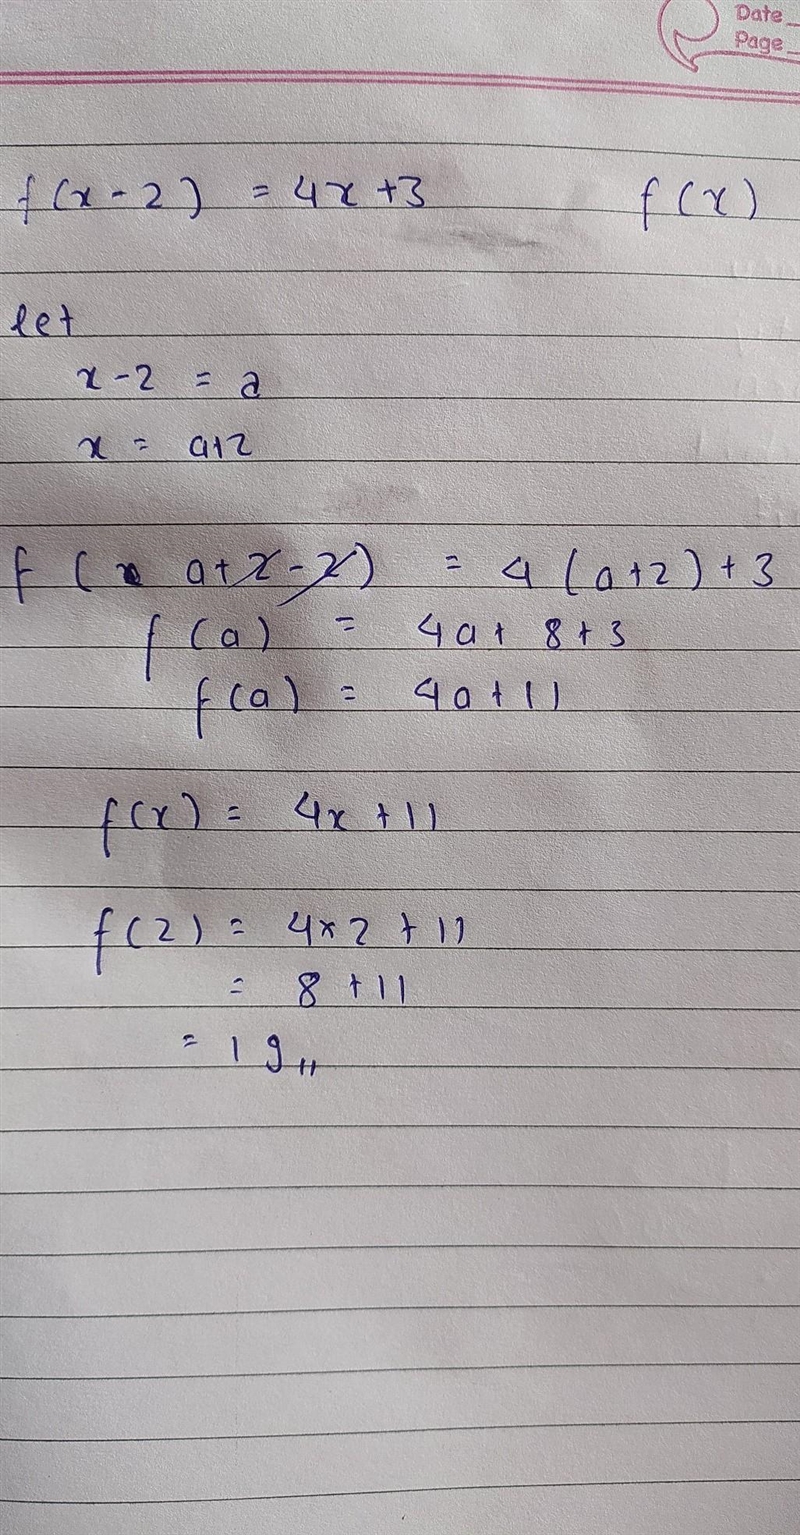 Date
Page
f(x-2) = 4x+3 f(x)
let
x-2 = a
x = a+2
f ( a+2-2) = 4 (a+2)+3
f(a) = 4a+ 8+3
f(a) = 4a+11
f(x) = 4x+11
f(2) = 4×2+11
= 8+11
= 19,,